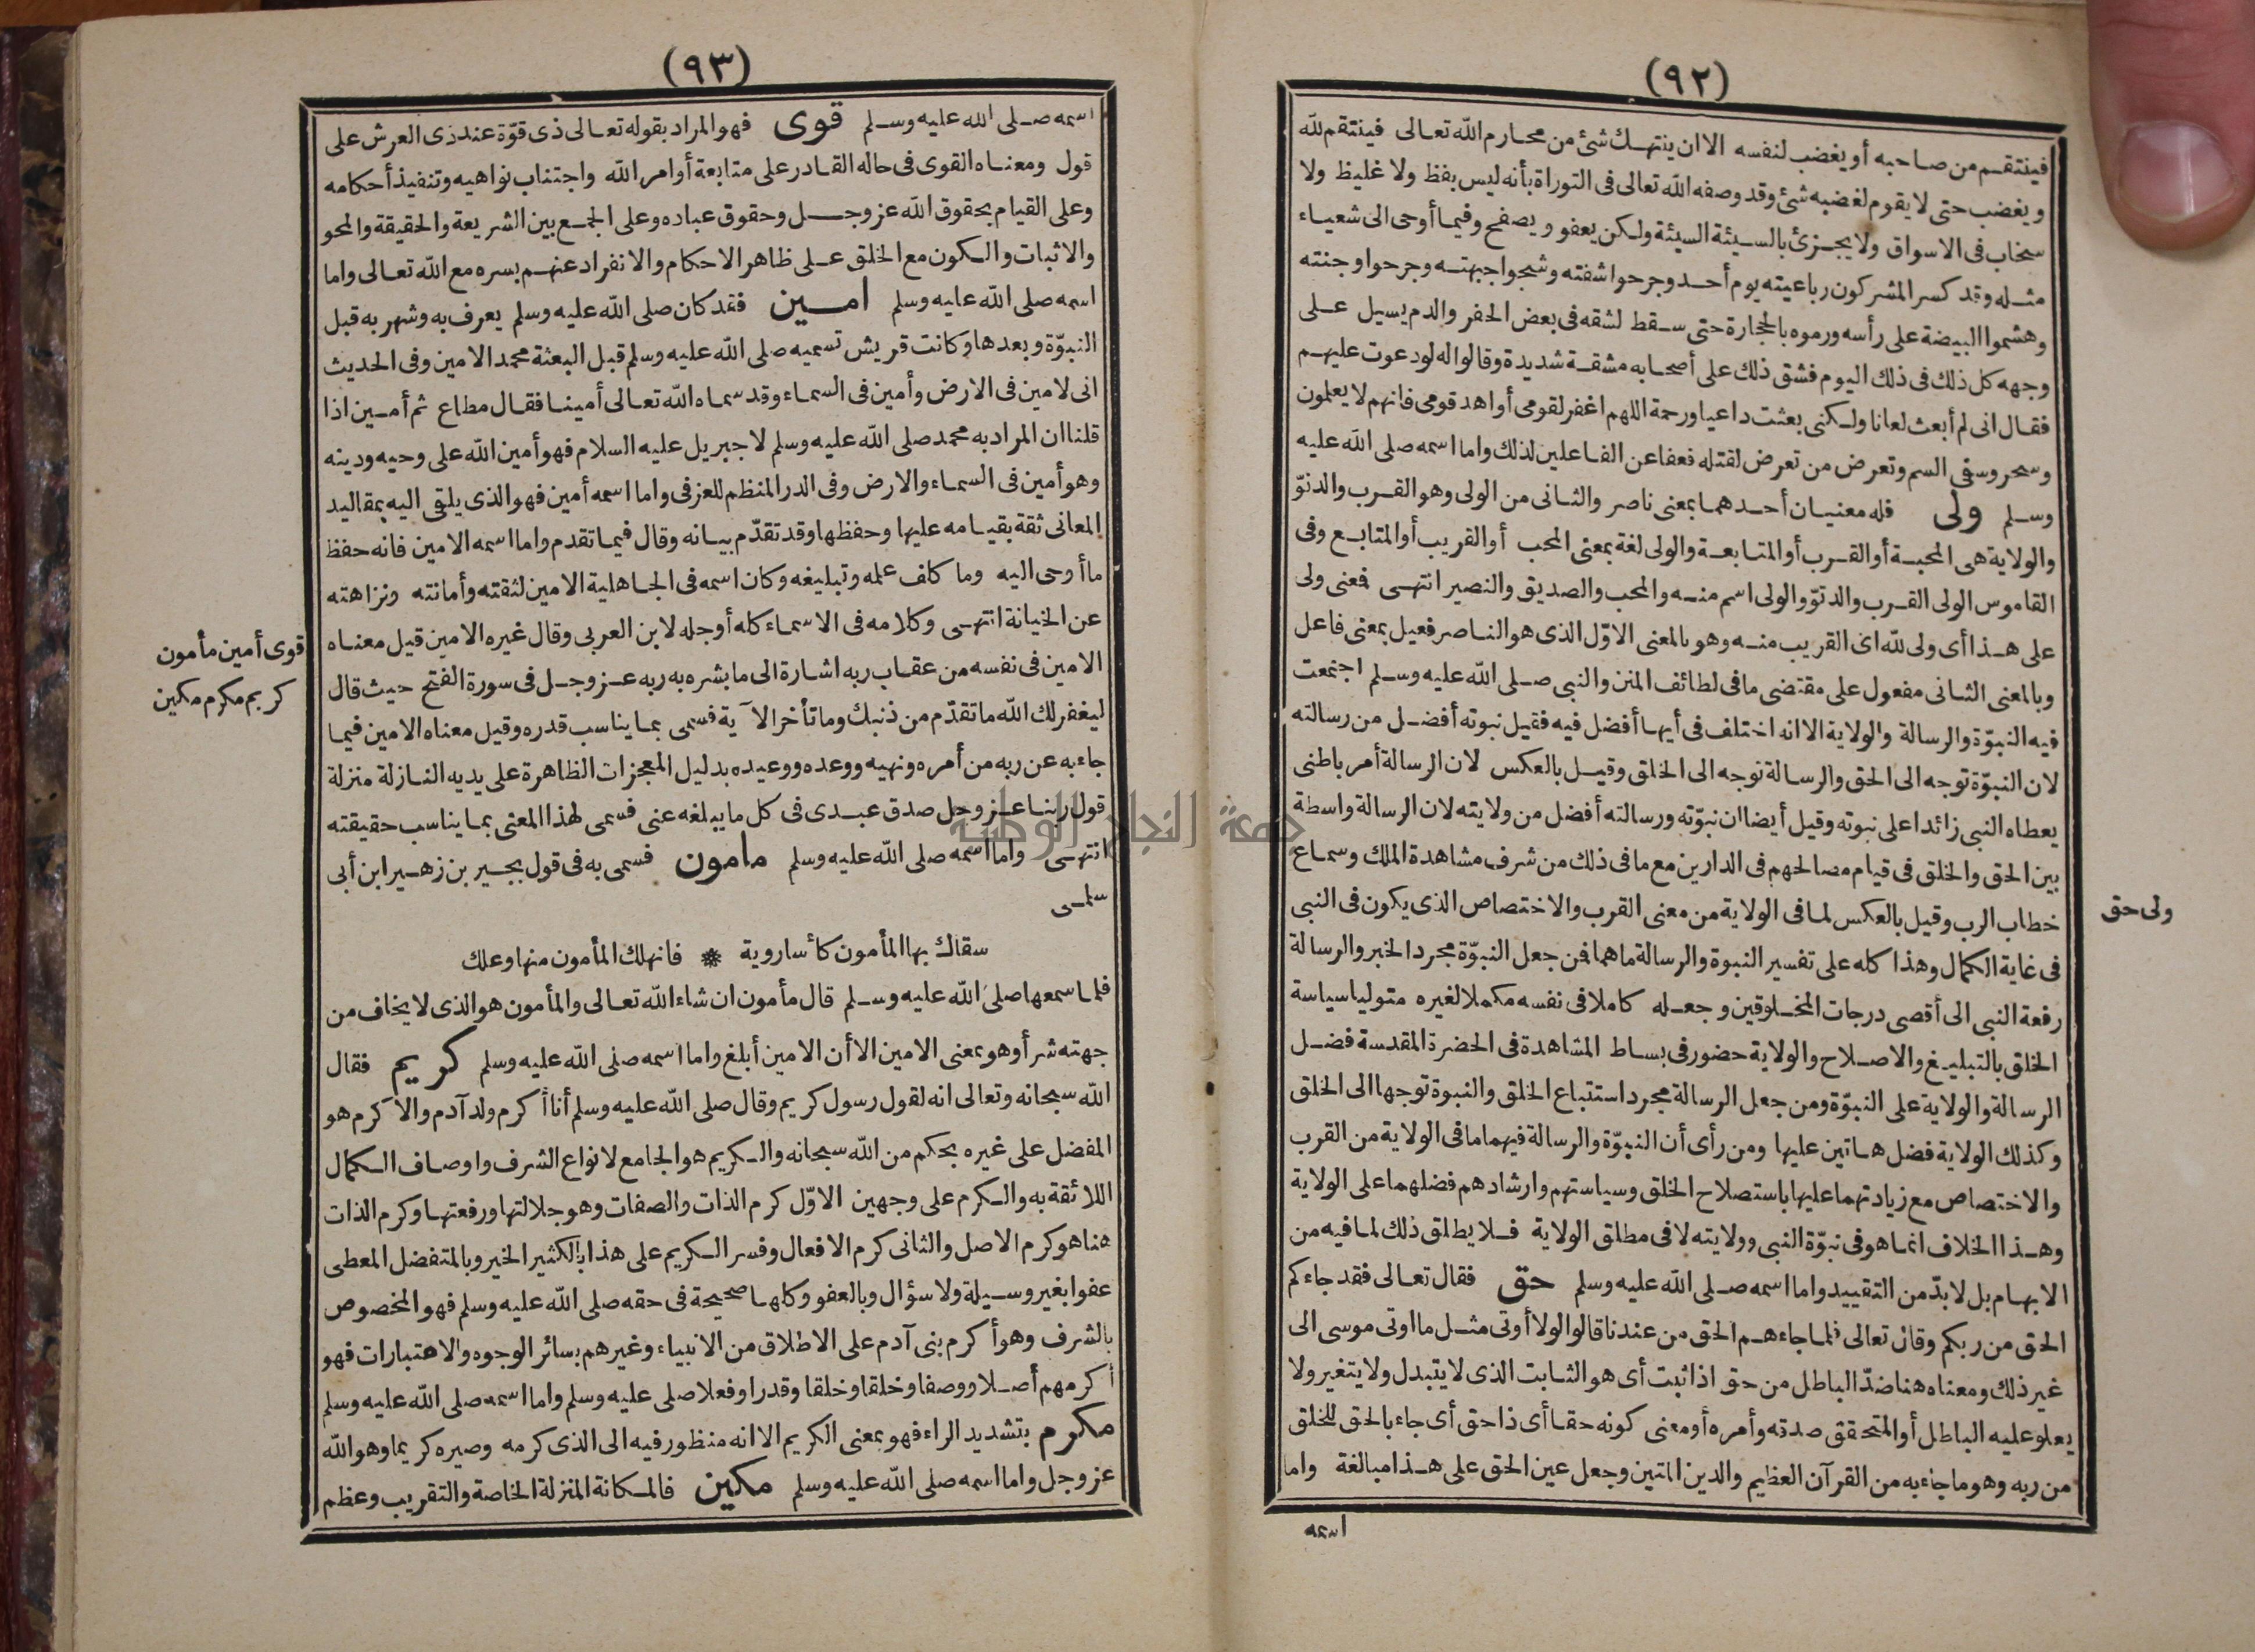 (٩٢)
فينتقم من صاحبه أو يغضب لنفسه الا ان ينتهك شئ من محارم الله تعالى فينتقم لله
ويغضب حتى لا يقوم لغضبه شئ وقد وصفه الله تعالى فى التوراة بأنه ليس بفظ ولا غليظ ولا
سخاب فى الاسواق ولا يجزئ بالسيئة السيئة ولكن يعفو ويصفح وفيما أوحى الى شعياء
مثله وقد كسر المشركون رباعيته يوم أحد وجرحوا شفته وشجوا جبهته وجرحوا وجنته
وهشموا البيضة على رأسه ورموه بالحجارة حتى سقط لشقه فى بعض الحفر والدم يسيل على
وجهه كل ذلك فى ذلك اليوم فشق ذلك على أصحابه مشقة شديدة وقالوا له لو دعوت عليهم
فقال انى لم أبعث لعانا ولكنى بعثت داعيا ورحمة اللهم اغفر لقومى أو اهد قومى فانهم لا يعلمون
وسحر وسقى السم وتعرض من تعرض لقتله فعفا عن الفاعلين لذلك واما اسمه صلى الله عليه
وسلم ولى فله معنيان أحدهما بمعنى ناصر والثانى من الولى وهو القرب والدنوّ
والولاية هى المحبة أو القرب أو المتابعة والولى لغة بمعنى المحب أو القريب أو المتابع وفى
القاموس الولى القرب والدنوّ والولى اسم منه والمحب والصديق والنصير انتهى فمعنى ولى
على هذا أى ولى لله اى القريب منه وهو بالمعنى الاوّل الذى هو الناصر فعيل بمعنى فاعل
وبالمعنى الثانى مفعول على مقتضى ما فى لطائف المنن والنبى صلى الله عليه وسلم اجتمعت
فيه النبوّة والرسالة والولاية الا انه اختلف فى أيها أفضل فيه فقيل نبوته أفضل من رسالته
لان النبوّة توجه الى الحق والرسالة توجه الى الخلق وقيل بالعكس لان الرسالة أمر باطنى
يعطاه النبى زائدا على نبوته وقيل أيضا ان نبوّته ورسالته أفضل من ولايته لان الرسالة واسطة
بين الحق والخلق فى قيام مصالحهم فى الدارين مع ما فى ذلك من شرف مشاهدة الملك وسماع
خطاب الرب وقيل بالعكس لما فى الولاية من معنى القرب والاختصاص الذى يكون فى النبى
فى غاية الكمال وهذا كله على تفسير النبوة والرسالة ما هما فمن جعل النبوّة مجرد الخبر والرسالة
رفعة النبى الى أقصى درجات المخلوقين وجعله كاملا فى نفسه مكملا لغيره متوليا سياسة
الخلق بالتبليغ والاصلاح والولاية حضور فى بساط المشاهدة فى الحضرة المقدسة فضل
الرسالة والولاية على النبوّة ومن جعل الرسالة مجرد استتباع الخلق والنبوة توجها الى الخلق
وكذلك الولاية فضل هاتين عليها ومن رأى أن النبوّة والرسالة فيهما ما فى الولاية من القرب
والاختصاص مع زيادتهما عليها باستصلاح الخلق وسياستهم وارشادهم فضلهما على الولاية
وهذا الخلاف انما هو فى نبوّة النبى وولايته لا فى مطلق الولاية فلا يطلق ذلك لما فيه من
الابهام بل لا بدّ من التقييد واما اسمه صلى الله عليه وسلم حق فقال تعالى فقد جاءكم
الحق من ربكم وقال تعالى فلما جاءهم الحق من عندنا قالوا لولا أوتى مثل ما اوتى موسى الى
غير ذلك ومعناه هنا ضدّ الباطل من حق اذا ثبت أى هو الثابت الذى لا يتبدل ولا يتغير ولا
يعلو عليه الباطل أو المتحقق صدقه وأمره أو معنى كونه حقا أى ذا حق أى جاء بالحق للخلق
من ربه وهو ما جاء به من القرآن العظيم والدين المتين وجعل عين الحق على هذا مبالغة واما
اسمه
ولى حق
(٩٣)
اسمه صلى الله عليه وسلم قوى فهو المراد بقوله تعالى ذى قوّة عند ذى العرش على
قول ومعناه القوى فى حاله القادر على متابعة أوامر الله واجتناب نواهيه وتنفيذ أحكامه
وعلى القيام بحقوق الله عز وجل وحقوق عباده وعلى الجمع بين الشريعة والحقيقة والمحو
والاثبات والكون مع الخلق على ظاهر الاحكام والانفراد عنهم بسره مع الله تعالى واما
اسمه صلى الله عليه وسلم امين فقد كان صلى الله عليه وسلم يعرف به وشهر به قبل
النبوّة وبعدها وكانت قريش تسميه صلى الله عليه وسلم قبل البعثة محمد الامين وفى الحديث
انى لامين فى الارض وأمين فى السماء وقد سماه الله تعالى أمينا فقال مطاع ثم أمين اذا
قلنا ان المراد به محمد صلى الله عليه وسلم لا جبريل عليه السلام فهو أمين الله على وحيه ودينه
وهو أمين فى السماء والارض وفى الدر المنظم للعزفى واما اسمه أمين فهو الذى يلقى اليه بمقاليد
المعانى ثقة بقيامه عليها وحفظها وقد تقدّم بيانه وقال فيما تقدم واما اسمه الامين فانه حفظ
ما أوحى اليه وما كلف عمله وتبليغه وكان اسمه فى الجاهلية الامين لثقته وأمانته ونزاهته
عن الخيانة انتهى وكلامه فى الاسماء كله أو جله لابن العربى وقال غيره الامين قيل معناه
الامين فى نفسه من عقاب ربه اشارة الى ما بشره به ربه عز وجل فى سورة الفتح حيث قال
ليغفر لك الله ما تقدّم من ذنبك وما تأخر الآية فسمى بما يناسب قدره وقيل معناه الامين فيما
جاء به عن ربه من أمره ونهيه ووعده ووعيده بدليل المعجزات الظاهرة على يديه النازلة منزلة
قول ربنا عز وجل صدق عبدى فى كل ما يبلغه عنى فسمى لهذا المعنى بما يناسب حقيقته
انتهى واما اسمه صلى الله عليه وسلم مامون فسمى به فى قول بجير بن زهير ابن أبى
سلمى
سقاك بها المأمون كأسا روية ❋ فانهلك المأمون منها وعلك
فلما سمعها صلى الله عليه وسلم قال مأمون ان شاء الله تعالى والمأمون هو الذى لا يخاف من
جهته شر أو هو بمعنى الامين الا أن الامين أبلغ واما اسمه صلى الله عليه وسلم كريم فقال
الله سبحانه وتعالى انه لقول رسول كريم وقال صلى الله عليه وسلم أنا أكرم ولد آدم والاكرم هو
المفضل على غيره بحكم من الله سبحانه والكريم هو الجامع لانواع الشرف واوصاف الكمال
اللائقة به والكرم على وجهين الاوّل كرم الذات والصفات وهو جلالتها ورفعتها وكرم الذات
هنا هو كرم الاصل والثانى كرم الافعال وفسر الكريم على هذا بالكثير الخير وبالمتفضل المعطى
عفوا بغير وسيلة ولا سؤال وبالعفو وكلها صحيحة فى حقه صلى الله عليه وسلم فهو المخصوص
بالشرف وهو أكرم بنى آدم على الاطلاق من الانبياء وغيرهم بسائر الوجوه والاعتبارات فهو
أكرمهم أصلا ووصفا وخلقا وخلقا وقدرا وفعلا صلى عليه وسلم واما اسمه صلى الله عليه وسلم
مكرم بتشديد الراء فهو بمعنى الكريم الا انه منظور فيه الى الذى كرمه وصيره كريما وهو الله
عز وجل واما اسمه صلى الله عليه وسلم مكين فالمكانة المنزلة الخاصة والتقريب وعظم
قوى أمين مأمون
كريم مكرم مكين
جامعة النجاح الوطنية